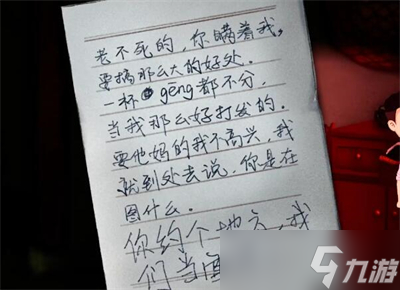 老不死的，你瞒着我，
要搞那么大的好处．
一杯gēng都不分．
当我那么好打发的．
要他妈的我不高兴，我
就到处去说，你是在
图什么．
你约个地方，我
们当
九游